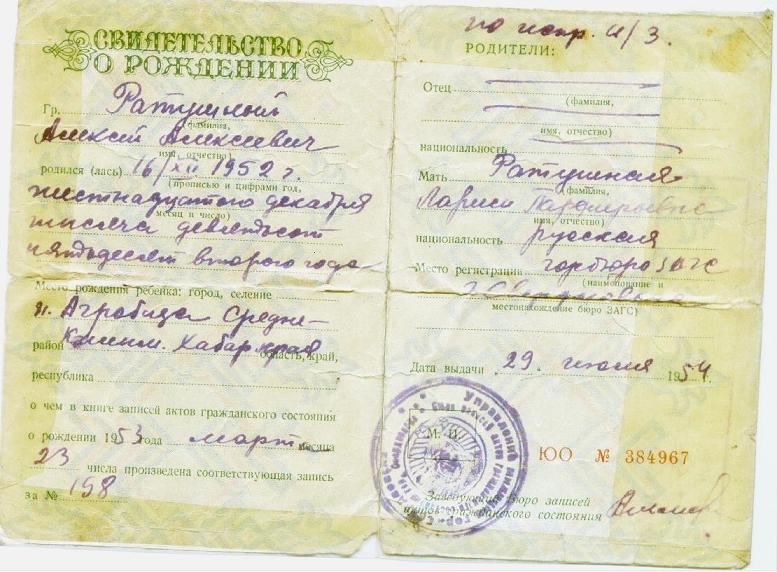 СВИДЕТЕЛЬСТВО
О РОЖДЕНИИ
Гр. Ратушный
(фамилия,
Алексей Алексеевич
имя, отчество)
родился (лась) 16/XII 1952 г.
(прописью и цифрами год,
шестнадцатого декабря
месяц и число)
тысяча девятьсот
пятьдесят второго года
Место рождения ребенка: город, селение
п. Агробаза Средне-
район Каним. Хабар. края область, край,
республика
о чем в книге записей актов гражданского состояния
о рождении 1953 года март месяца
23 числа произведена соответствующая запись
за № 198
по испр. и/з.
РОДИТЕЛИ:
Отец
(фамилия,
имя, отчество)
национальность
Мать Ратушная
(фамилия,
Лариса
имя, отчество)
национальность русская
Место регистрации горбюро ЗАГС
(наименование и
г. Свердловска
местонахождение бюро ЗАГС)
Дата выдачи 29 июля 1954 г.
М. П.
ЮО № 384967
Заведующий бюро записей
актов гражданского состояния